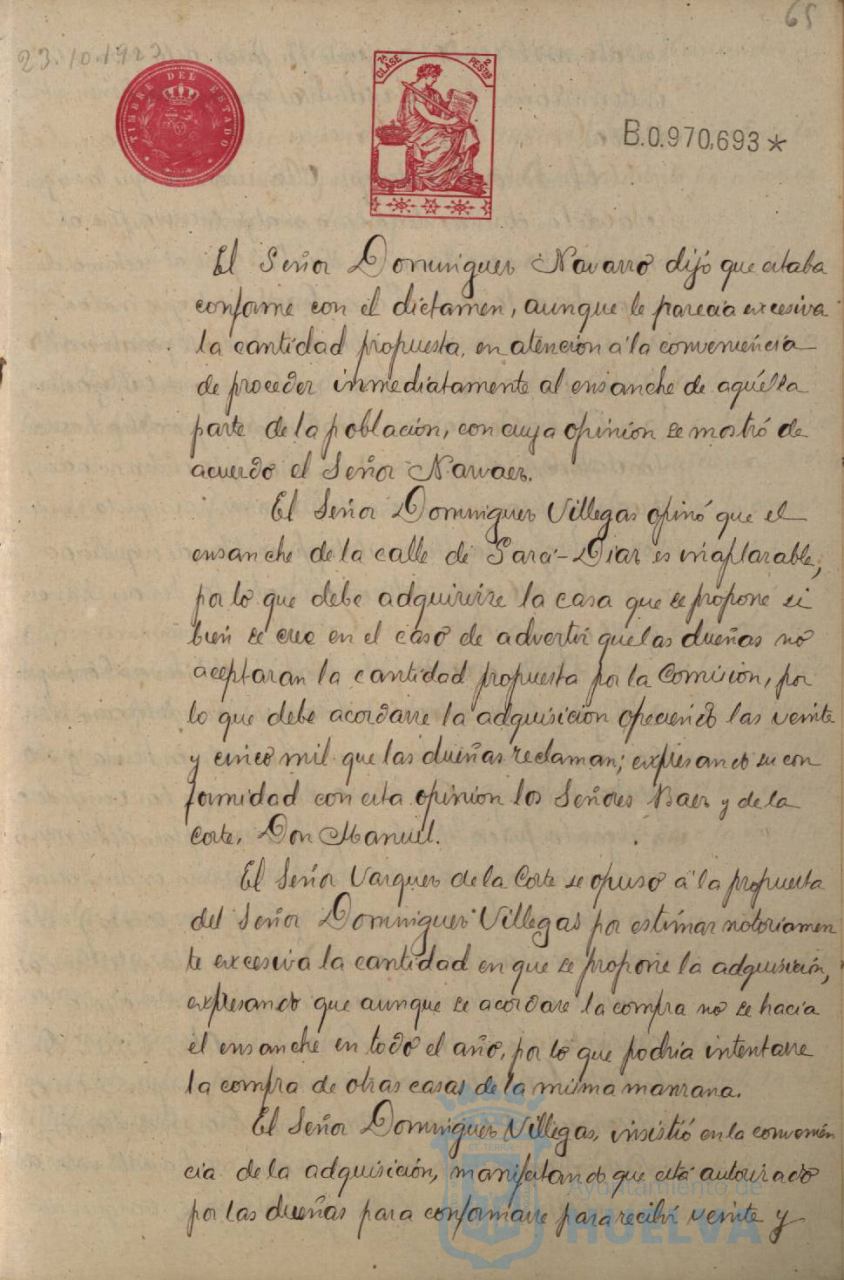 65
23.10.1923
TIMBRE DEL ESTADO
7ª CLASE 2 PESTAS
B.0.970,693*
El Señor Dominguez Navarro dijó que estaba
conforme con el dictamen, aunque le parecia excesiva
la cantidad propuesta, en atención á la conveniencia
de proceder inmediatamente al ensanche de aquélla
parte de la población, con cuya opinión se mostró de
acuerdo el Señor Narvaez.
El Señor Dominguez Villegas opinó que el
ensanche de la calle de Sara-Diaz es inaplazable,
por lo que debe adquirirse la casa que se propone si
bien se cree en el caso de advertir que las dueñas no
aceptaran la cantidad propuesta por la Comisión, por
lo que debe acordarse la adquisición ofreciendo las veinte
y cinco mil que las dueñas reclaman; expresando su con
formidad con esta opinión los Señores Baez y de la
Corte, Don Manuel.
El Señor Vazquez de la Corte se opuso á la propuesta
del Señor Dominguez Villegas por estimar notoriamen
te excesiva la cantidad en que se propone la adquisición,
expresando que aunque se acordase la compra no se hacía
el ensanche en todo el año, por lo que podría intentarse
la compra de otras casas de la misma manzana.
El Señor Dominguez Villegas, insistió en la convenien
cia de la adquisición, manifestando que está autorizado
por las dueñas para conformarse para recibir veinte y
Ayuntamiento de
HUELVA